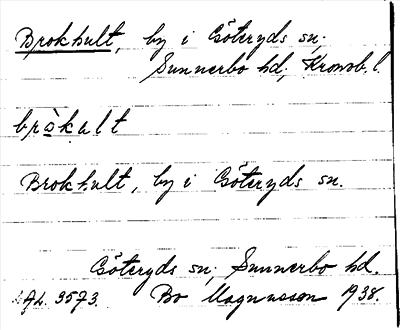 Brokhult, by i Göteryds sn;
Sunnerbo hd; Kronob. l.
bròkalt
Brokhult, by i Göteryds sn.
Göteryds sn; Sunnerbo hd.
3573. Bo Magnusson 1938.